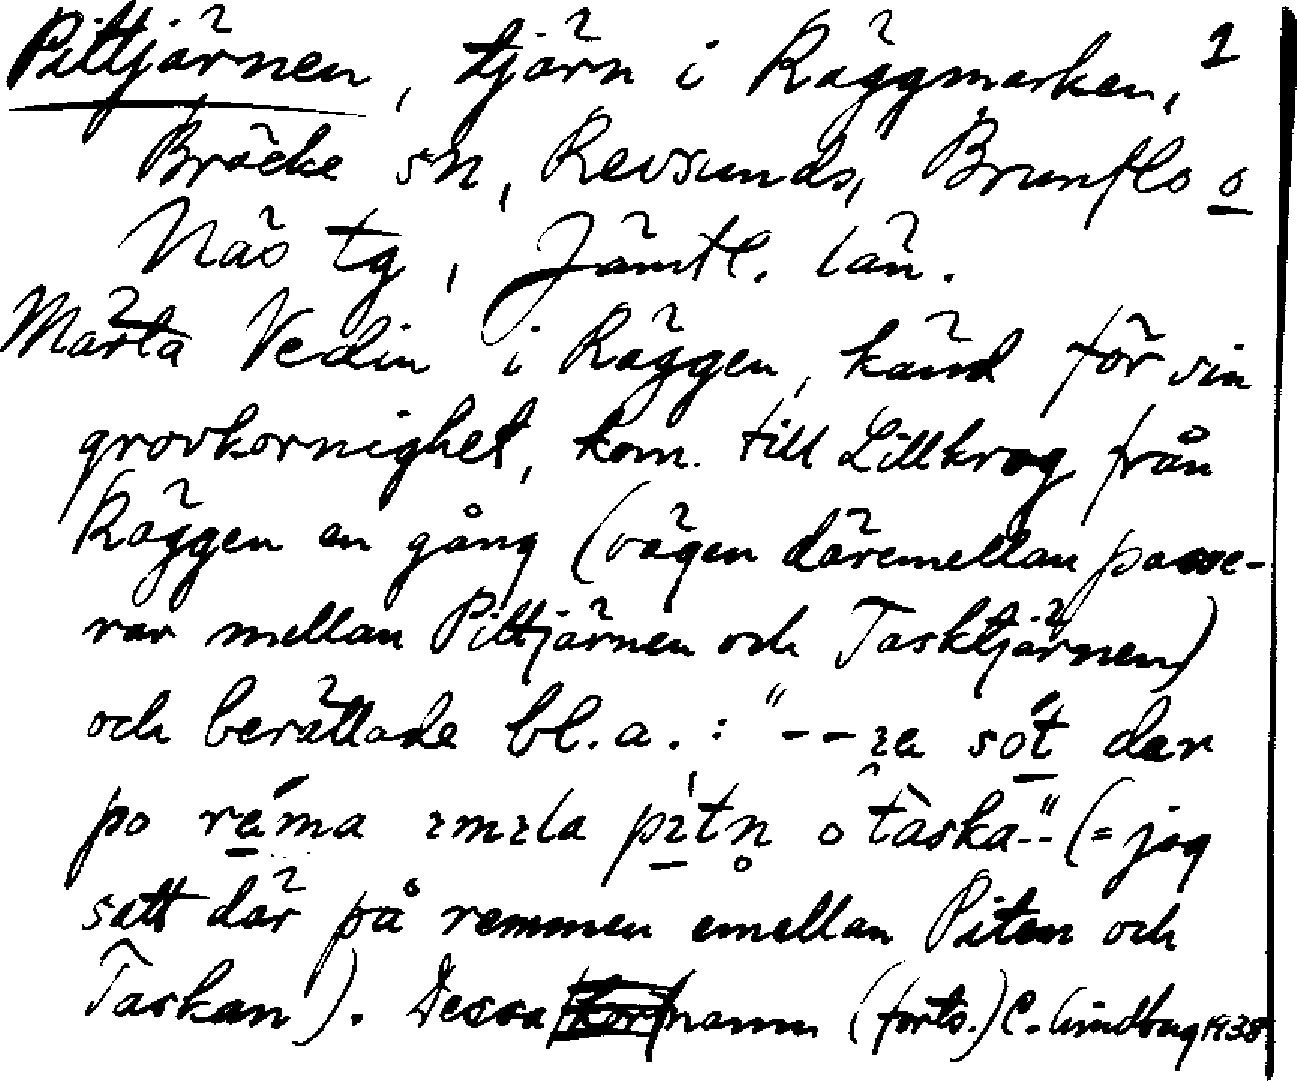 Pittjärnen, tjärn i Räggmarken, 2
Bräcke sn, Revsunds, Brunflo o
Näs tg, Jämtl. län.
Märta Vedin i Räggen, känd för sin
grovkornighet, kom till Lillkrog från
Räggen en gång (vägen däremellan passe-
rar mellan Pittjärnen och Tasktjärnen)
och berättade bl.a.: "-- sōt dar
po rema pitn̥ o taska--" (= jag
satt där på remmen emellan Piten och
Taskan). Dessa namn (forts.) C. Lindberg 1938